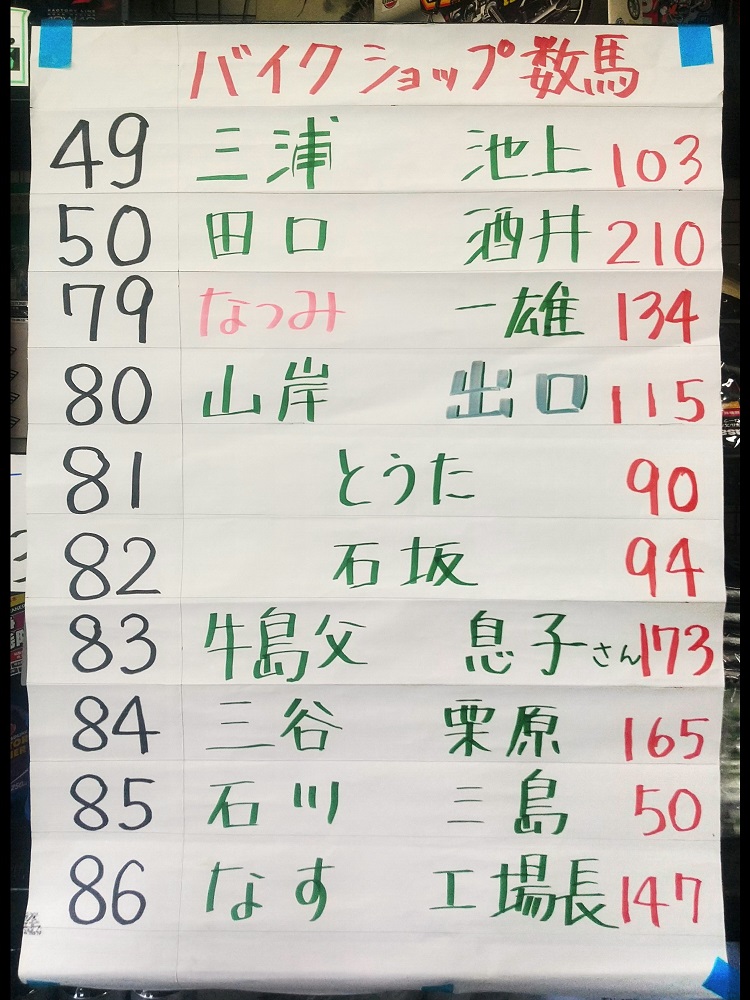 バイクショップ数馬
49 三浦 池上 103
50 田口 酒井 210
79 なつみ 一雄 134
80 山岸 出口 115
81 とうた 90
82 石坂 94
83 牛島父 息子さん 173
84 三谷 栗原 165
85 石川 三島 50
86 なす 工場長 147